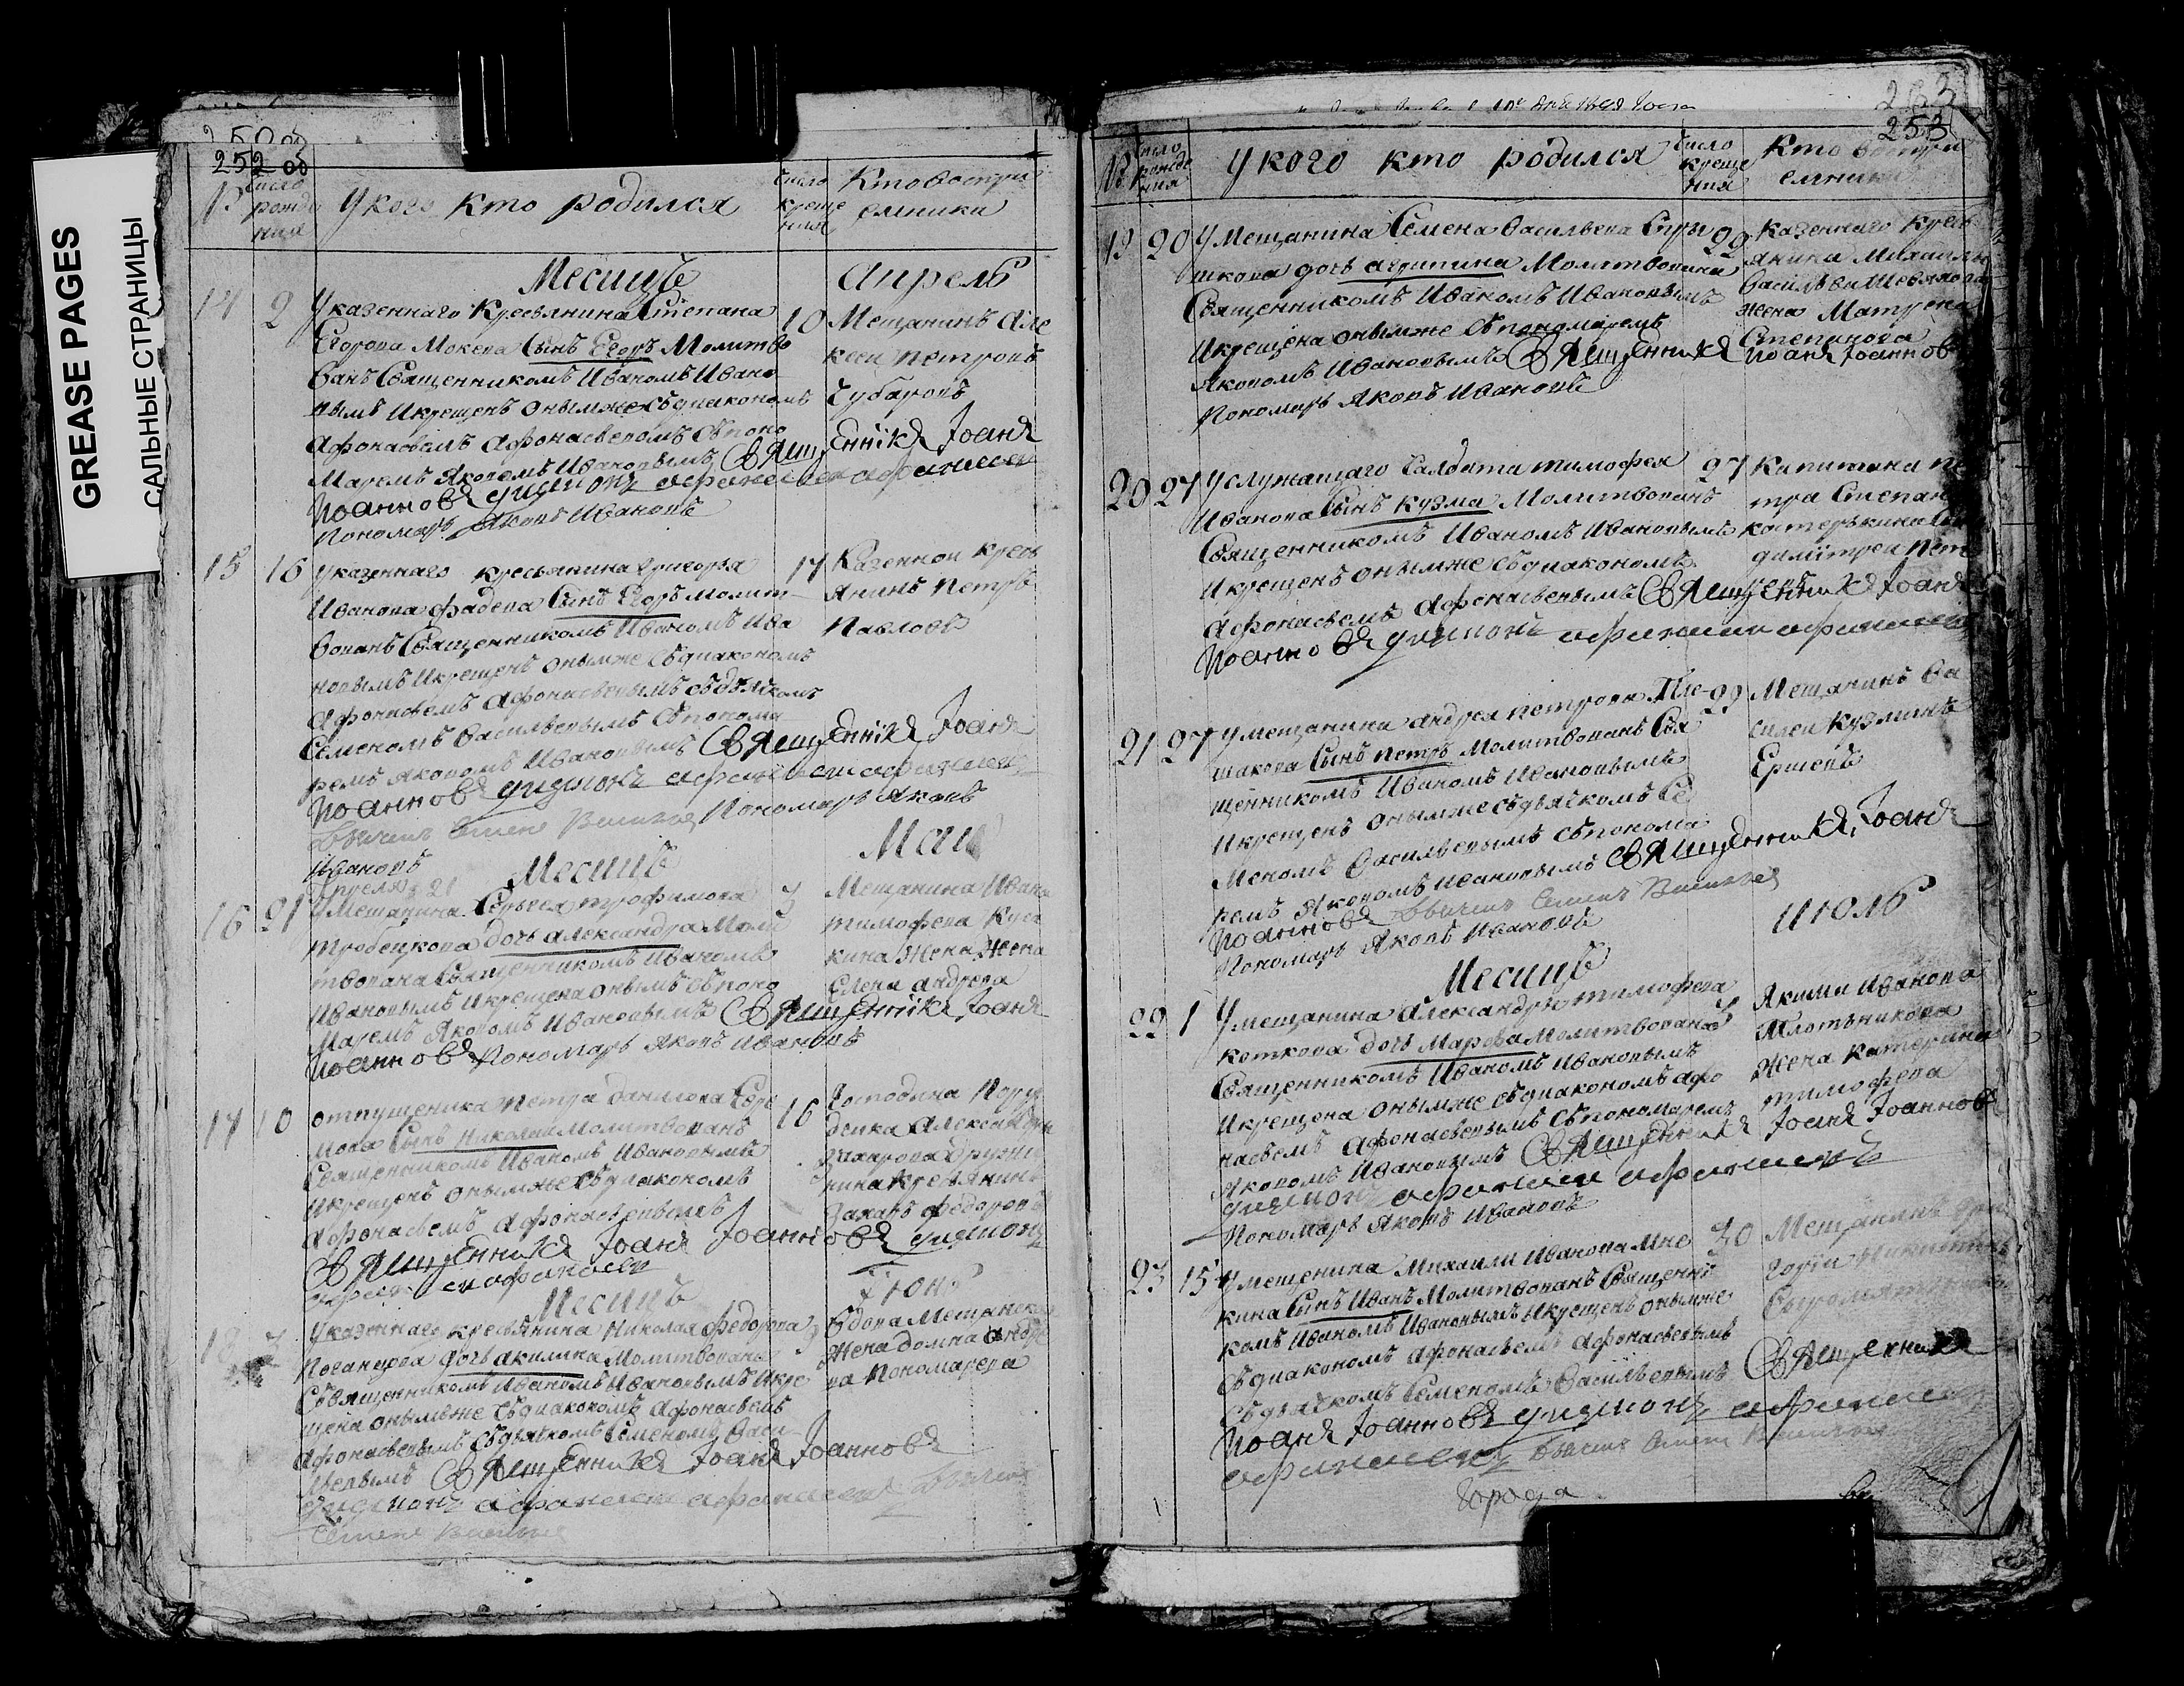 GREASE PAGES
САЛЬНЫЕ СТРАНИЦЫ
252 об
№
число рожде ния
У кого кто родился
число креще ния
Кто восприемники
Месяцъ Апрель
14 2 У казеннаго Крестьянина Степана
Егорова Мокева Сынъ Егоръ Молитво
ванъ Священникомъ Иваномъ Ивано
вымъ Икрещенъ онымже Съдиакономъ
Афонасьемъ Афонасьевомъ Съпоно
маремъ Яковомъ Ивановымъ Священнiкъ Iоанъ
Иоанновъ диаконъ афанасей афанасьев
Пономарь Яковъ Ивановъ
10 Мещанинъ Але
ксеи Петровъ
Губаровъ
15 16 У казеннаго крестьянина Григорья
Иванова фадеева Сынъ Егоръ молит
вованъ Священникомъ Иваномъ Ива
новымъ Икрещенъ онымже Съдиакономъ
Афонасьемъ Афонасьевымъ съдьячкомъ
Семеномъ Васильевымъ Съпонома
ремъ Яковомъ Ивановымъ Священнiкъ Iоанъ
Иоанновъ диаконъ афанасей афанасьев
Дьячекъ Семенъ Васильев Пономарь Яковъ
Ивановъ
17 Казеннои крест
янинъ Петръ
Павловъ
Месяцъ Маи
Апреля 21
16 21 У Мещанина Сергея трофимова
трубецкова дочь александра Моли
твована Священникомъ Иваномъ
Ивановымъ Икрещена онымъ Съпоно
маремъ Яковомъ Ивановымъ Священнiкъ Iоанъ
Иоанновъ Пономарь Яковъ Ивановъ
3 Мещанина Ивана
тимофева
кина Жена Жена
Елена андреева
17 10 отпущеника Петра данилова
Сынъ Николаи Молитвованъ
Священникомъ Иваномъ Ивановымъ
Икрещенъ онымже Съдиакономъ
Афонасьемъ Афонасьевымъ
Священникъ Iоанъ Iоанновъ диаконъ
афанасей афанасьев
16 Господина Пору
чика Александра
захарова
нина крестянинъ
Захаръ федоровъ
Месяцъ Iюнь
18 7 У казеннаго крестьянина Николая федорова
дочь акилина Молитвована
Священникомъ Иваномъ Ивановымъ Икре
щена онымже Съдиакономъ Афонасьемъ
Афонасьевымъ Съдьячкомъ Семеномъ Васи
льевымъ Священникъ Iоанъ Iоанновъ
диаконъ афанасей афанасьевъ Дьячекъ
Семенъ Васильев
9 Вдова Мещанска
Жена домна андре
ва Пономарева
253
№
число рожде ния
У кого кто родился
число креще ния
Кто восприемники
19 20 У Мещанина Семена Васильева
шкова дочь агрипина Молитвована
Священникомъ Иваномъ Ивановымъ
Икрещена онымже Съпономаремъ
Яковомъ Ивановымъ Священникъ Iоанъ Iоанновъ
Пономарь Яковъ Ивановъ
22 Казеннаго Крест
янина Михаилы
Васильева
жена Матрена
Степанова
20 27 У служащаго Салдата тимофея
Иванова Сынъ Кузма Молитвованъ
Священникомъ Иваномъ Ивановымъ
Икрещенъ онымже Съдиакономъ
Афонасьемъ Афонасьевымъ Священникъ Iоанъ
Иоанновъ диаконъ афанасей афанасьев
27 Капитана Пе
тра Степан
катерькина
димитреи Пет
21 27 У мещанина андрея петрова Пле
шакова Сынъ Петръ Молитвованъ Свя
щенникомъ Иваномъ Ивановымъ
Икрещенъ онымже Съдьячкомъ Се
меномъ Васильевымъ Съпонома
ремъ Яковомъ Ивановымъ Священникъ Iоанъ
Иоанновъ Дьячекъ Семенъ Васильев
Пономарь Яковъ Ивановъ
29 Мещанинъ Ва
силеи Кузминъ
Ершевъ
Месяцъ Июль
22 1 У мещанина Александра тимофева
коткова дочь Марфа Молитвована
Священникомъ Иваномъ Ивановымъ
Икрещена онымже Съдиакономъ афо
насьемъ Афонасьевымъ Съпономаремъ
Яковомъ Ивановымъ Священникъ Iоанъ Iоанновъ
диаконъ афанасей афанасьевъ
Пономарь Яковъ Ивановъ
3 Якима Иванова
Плотникова
Жена Катерина
тимофева
23 15 У мещенина Михаили Иванова Мне
кина Сынъ Иванъ Молитвованъ Священни
комъ Иваномъ Ивановымъ Икрещенъ онымже
Съдиакономъ Афонасьемъ Афонасьевымъ
Съдьячкомъ Семеномъ Васильевымъ Священникъ
Иоанъ Iоанновъ диаконъ афанасей
афанасьевъ Дьячекъ Семенъ Васильев
30 Мещанинъ Гри
гореи Никитинъ
Города